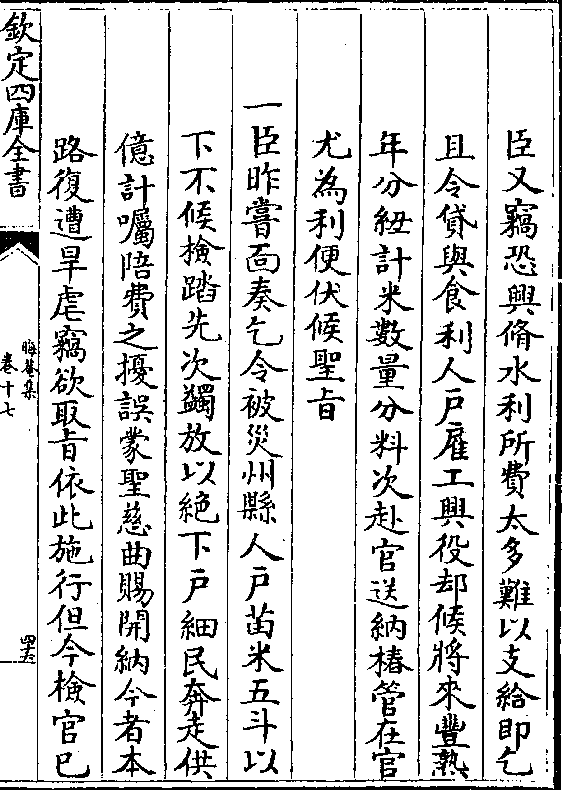 臣又竊恐興脩水利所費太多難以支給即乞
且令貸與食利人戸雇工興役却候將來豐熟
年分紐計米數量分料次赴官送納樁管在官
尤為利便伏候聖旨
一臣昨嘗面奏乞令被災州縣人戸苗米五斗以
下不候檢踏先次蠲放以絶下戸細民奔走供
億計囑陪費之擾誤蒙聖慈曲賜開納今者本
路復遭旱虐竊欲取旨依此施行但今檢官已
欽定四庫全書
晦菴集
卷十七